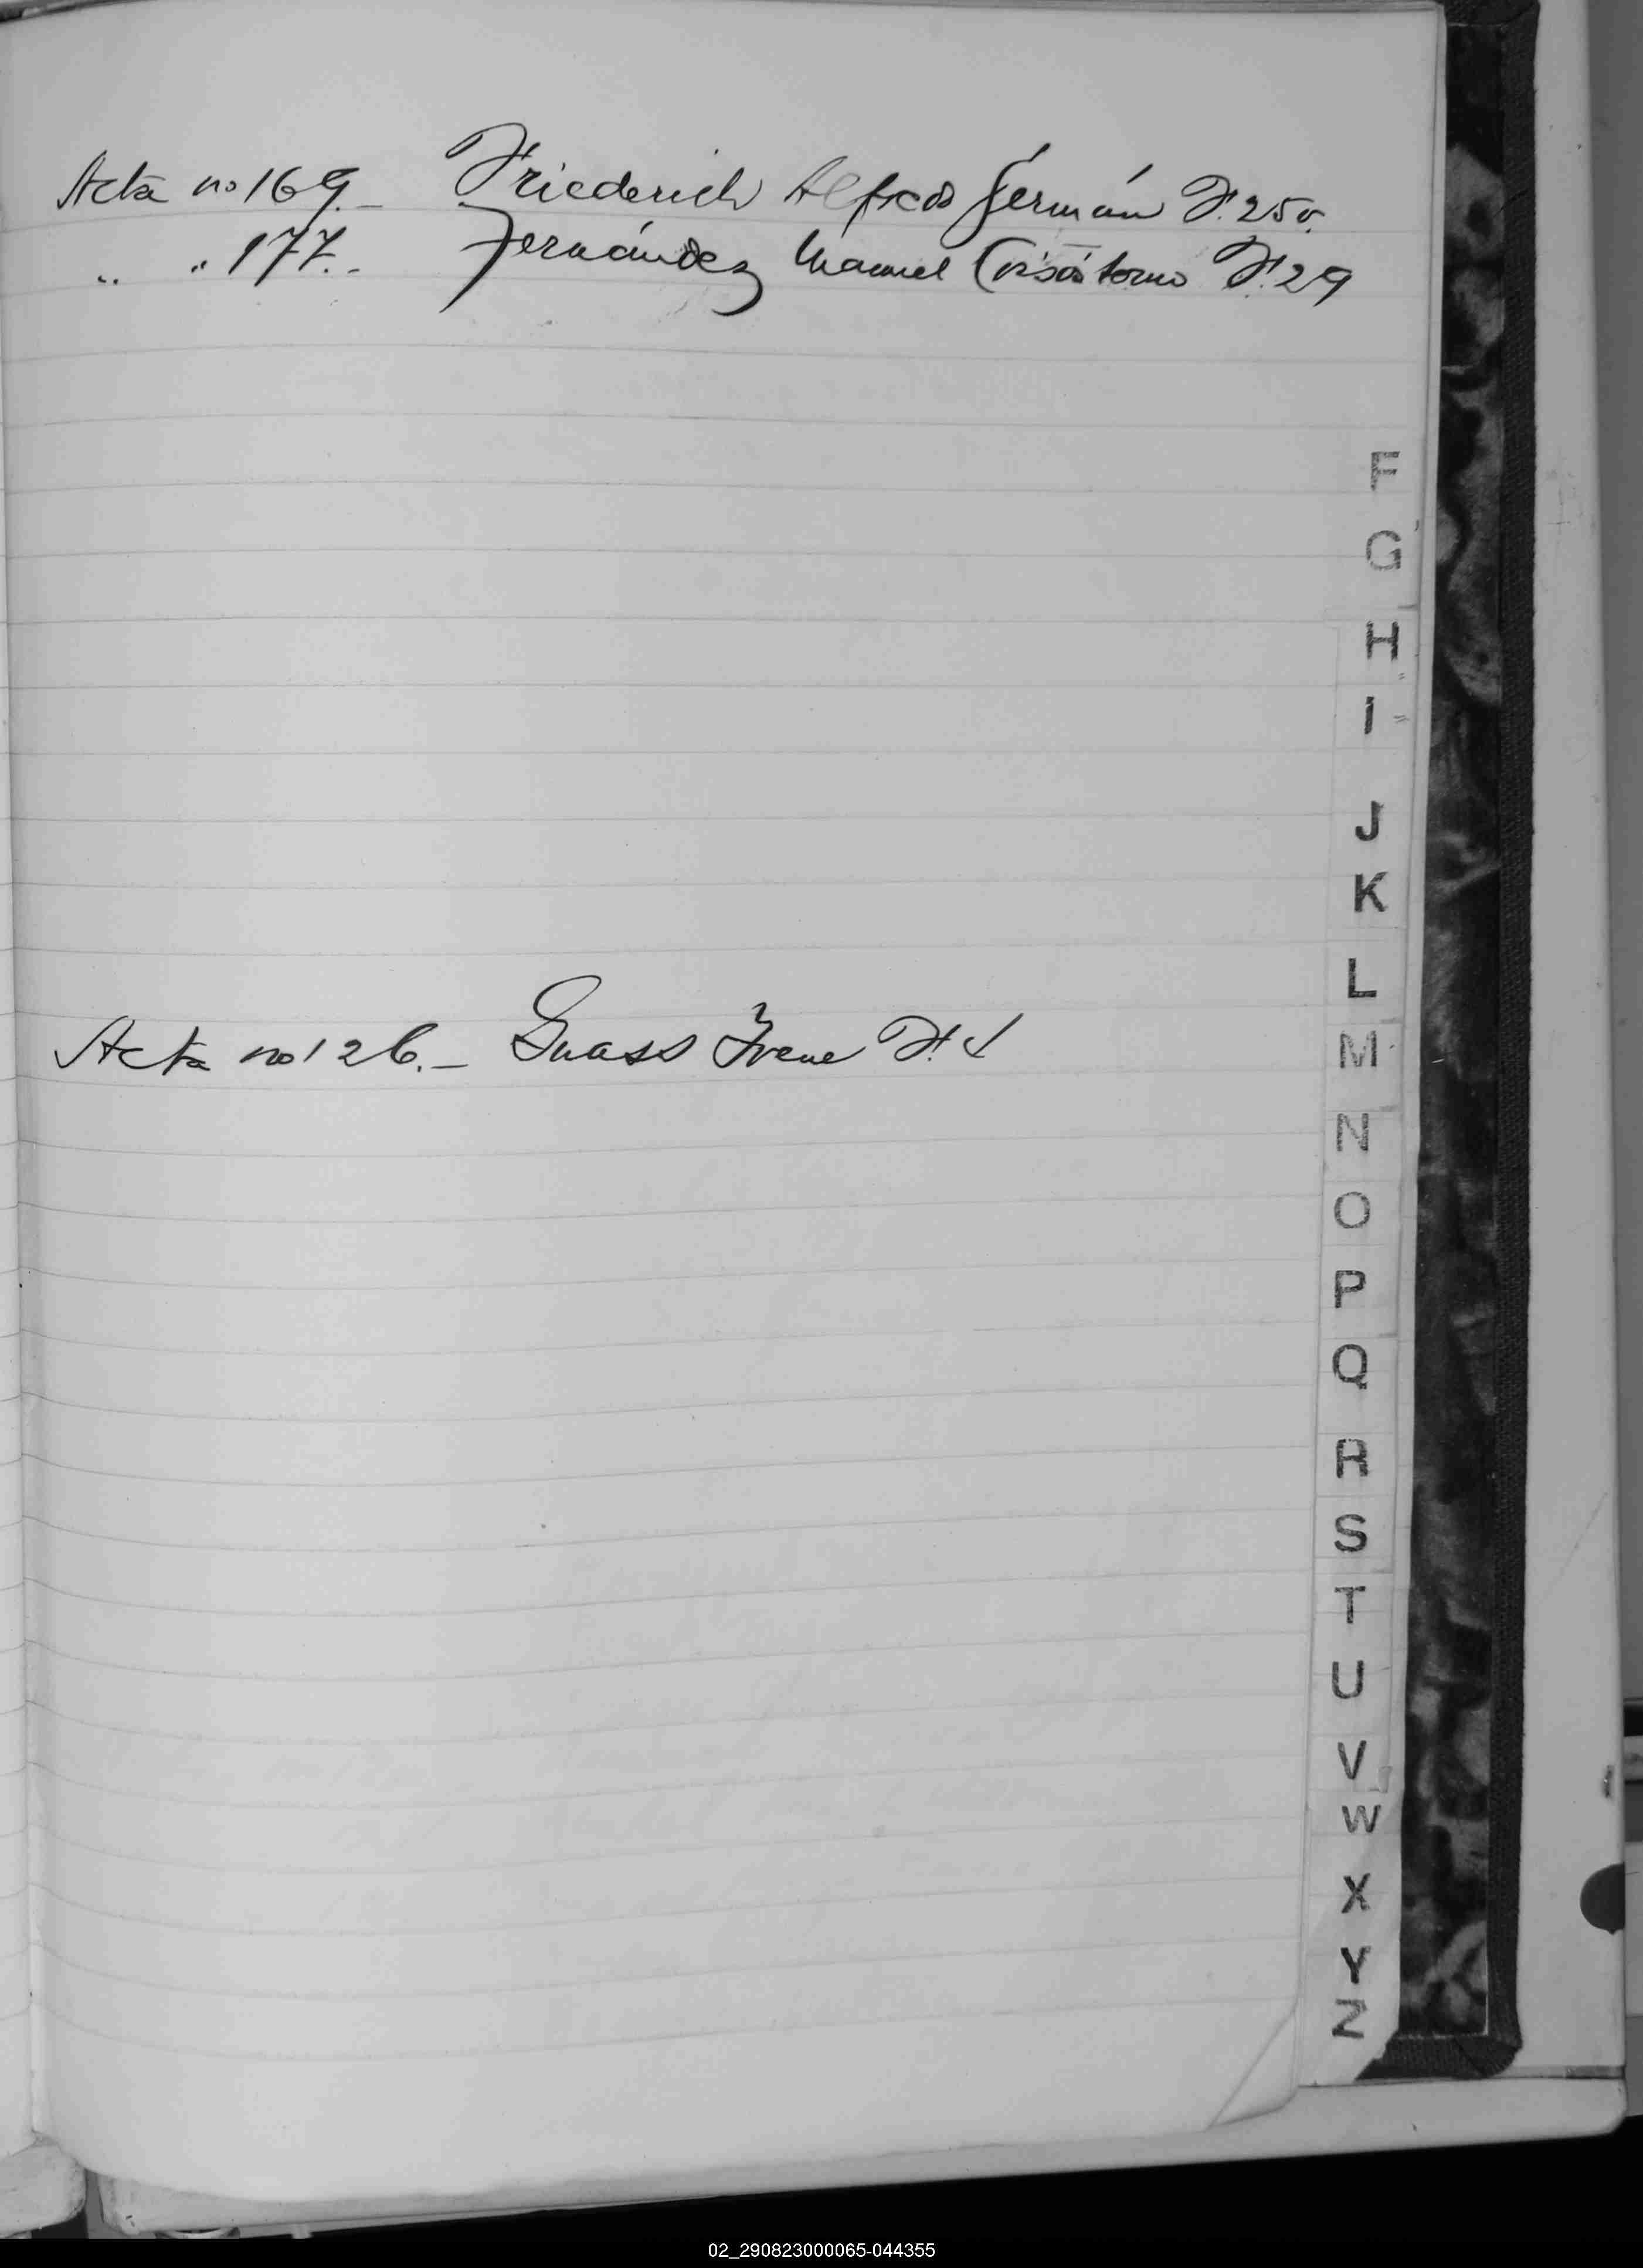 Acta no 169.- Friederich Alfredo Germán F. 25v.
" " 177.- Fernández Manuel Crisóstomo F. 29
F
G
H
I
J
K
L
Acta no 126.- Irene F.
M
N
O
P
Q
R
S
T
U
V
W
X
Y
Z
02_290823000065-044355